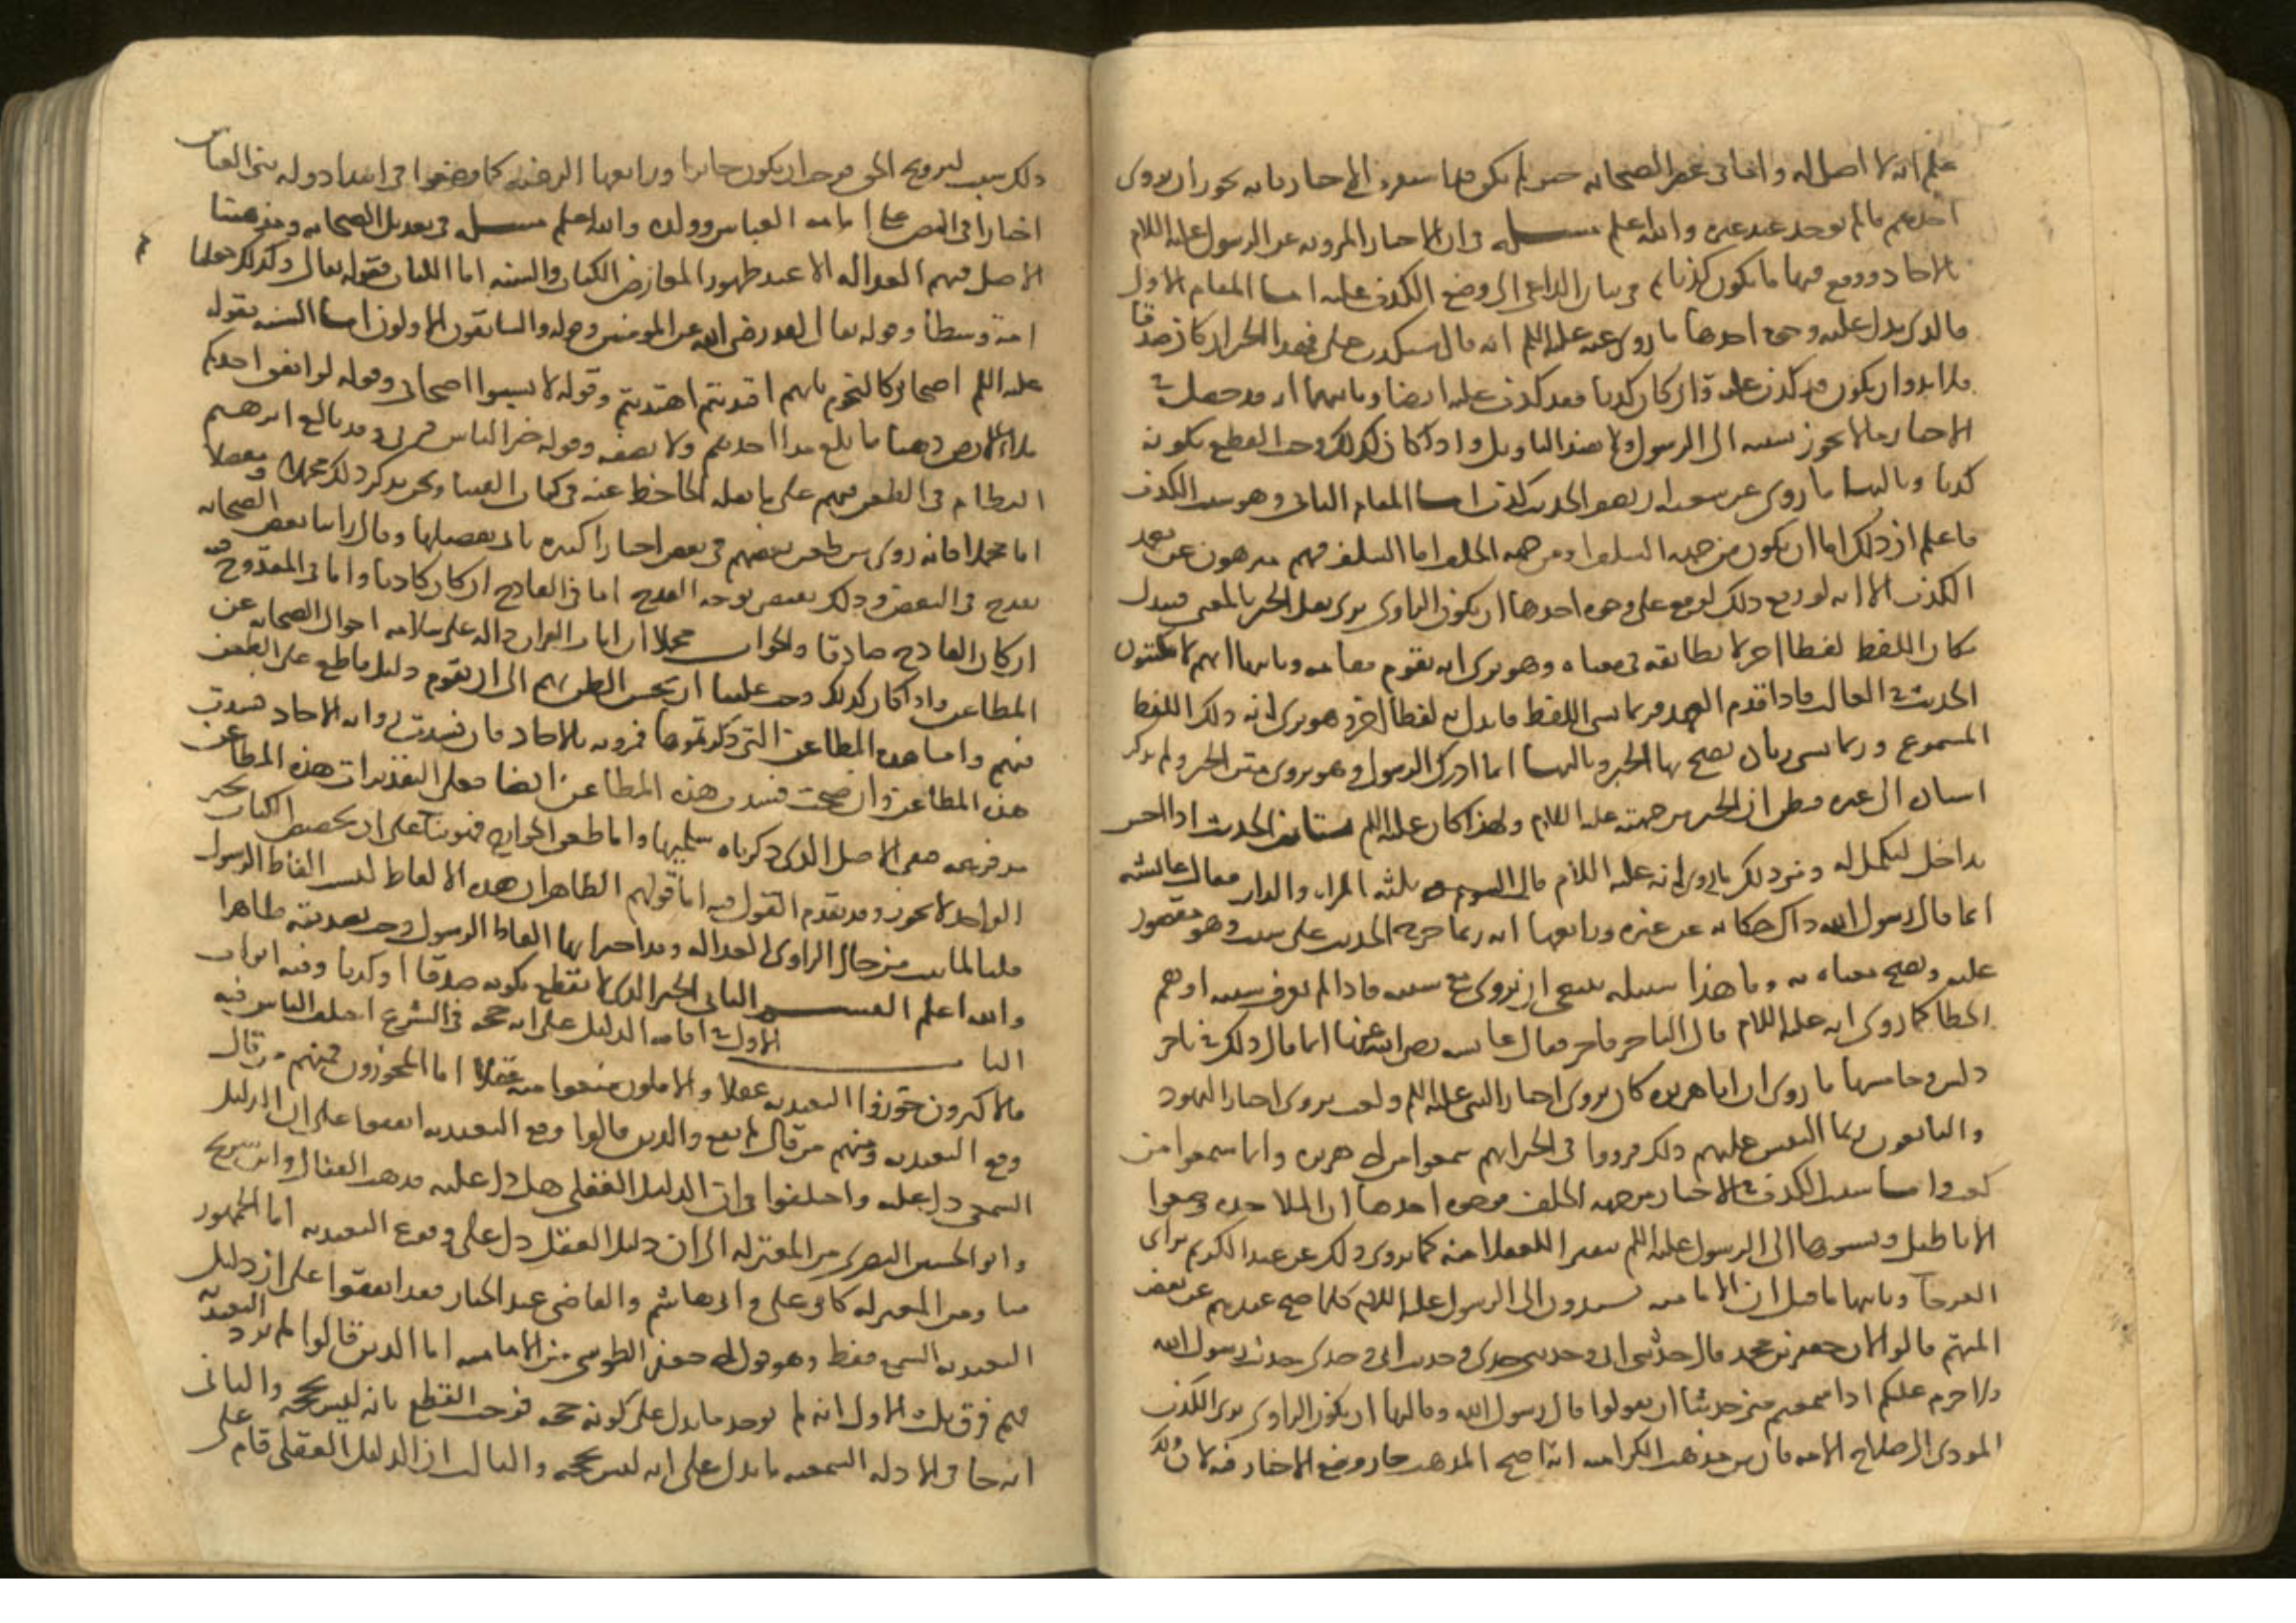 علم انه لا اصل له واما فى عصر الصحابه حين لم تكن الاخبار قد استقرت فانه يجوز ان يروى
احدهم ما لم يوجد عند غيره والله اعلم مسئله فى ان الاخبار المرويه عن الرسول عليه السلام
بالاحاد وقع فيها ما يكون كذبا ثم فى بيان الداعى الى وضع الكذب عليه اما المقام الاول
فالذى يدل عليه وجوه احدها ما روى عنه عليه السلم انه قال سيكذب على فهذا الخبر ان كان صدقا
فلا بد وان يكون قد كذب عليه وان كان كذبا فقد كذب عليه ايضا وثانيها ان قد حصل فى
الاخبار ما لا يجوز نسبته الى الرسول ولا يقبل التاويل واذا كان كذلك وجب القطع بكونه
كذبا وثالثها ما روى عن شعبه ان نصف الحديث كذب اما المقام الثانى وهو سبب الكذب
فاعلم ان ذلك اما ان يكون من جهه السلف او من جهه الخلف اما السلف فهم منزهون عن تعمد
الكذب الا انه لو وقع ذلك لوقع على وجوه احدها ان يكون الراوى يرى نقل الخبر بالمعنى فيبدل
مكان اللفظ لفظا اخر لا يطابقه فى معناه وهو يرى انه يقوم مقامه وثانيها انهم لا يكتبون
الحديث فى الغالب فاذا قدم العهد فربما نسى اللفظ فابدل به لفظا اخر وهو يرى انه ذلك اللفظ
المسموع وربما نسى زياده يصح بها الخبر وثالثها انما ادرك الرسول وهو يروى متن الخبر ولم يذكر
اسناده الى غيره فظن ان الخبر من جهته عليه السلام ولهذا كان عليه السلم يستانف الحديث اذا احس
بداخل ليكمل له ومن ذلك ما روى انه عليه السلام قال الشوم فى ثلثه المراه والدار فقالت عائشه
انما قال رسول الله ذاك حكايه عن غيره ورابعها انه ربما خرج الحديث على سبب وهو مقصور
عليه ويصح معناه به وما هذا سبيله ينبغى ان يروى مع سببه فاذا لم يعرف سببه اوهم
الخطا كما روى انه عليه السلام قال التاجر فاجر فقالت عايشه رضى الله عنها انما قال ذلك فى تاجر
دلس وخامسها ما روى ان ابا هريره كان يروى اخبار النبى عليه السلم وكعب يروى اخبار اليهود
والتابعون ربما التبس عليهم ذلك فرووا فى الخبر انهم سمعوا من ابى هريره وانما سمعوا من
كعب واما سبب الكذب فى الاخبار من جهه الخلف فوجوه احدها ان الملاحده وضعوا
الاباطيل ونسبوها الى الرسول عليه السلم تنفيرا للعقلا منه كما يروى ذلك عن عبد الكريم بن ابى
العوجا وثانيها ما قيل ان الاماميه يسندون الى الرسول عليه السلام كلما صح عندهم عن بعض
ائمتهم قالوا لان جعفر بن محمد قال حدثنى ابى وحديث ابى حديث جدى وحديث جدى حديث رسول الله
ولا حرج عليكم اذا سمعتم منى حديثا ان تقولوا قال رسول الله وثالثها ان يكون الراوى يرى الكذب
المودى الى صلاح الامه فان من مذهب الكراميه انه اذا صح المذهب جاز وضع الاخبار فيه لان ذلك
ذلك سبب لترويج الحق فوجب ان يكون جائزا ورابعها الرغبه كما وضعوا فى ابتدا دوله بنى العباس
اخبارا فى النص على امامه العباس وولده والله اعلم مسئله فى تعديل الصحابه ومذهبنا
الاصل فيهم العداله الا عند ظهور المعارض الكتاب والسنه اما الكتاب فقوله تعالى وكذلك جعلناكم
امه وسطا وقوله تعالى لقد رضى الله عن المومنين وقوله والسابقون الاولون اما السنه فقوله
عليه السلم اصحابى كالنجوم بايهم اقتديتم اهتديتم وقوله لا تسبوا اصحابى وقوله لو انفق احدكم
ملء الارض ذهبا ما بلغ مد احدهم ولا نصفه وقوله خير الناس قرنى وقد بالغ ابرهيم
النظام فى الطعن فيهم على ما نقله الجاحظ عنه فى كتاب الفتيا ونحن نذكر ذلك مجملا ومفصلا
اما مجملا فانه روى من طعن بعضهم فى بعض اخبارا كثيره ياتى تفصيلها وقال راينا بعض الصحابه
يقدح فى البعض وذلك يقتضى توجه القدح اما فى القادح ان كان كاذبا واما فى المقدوح فيه
ان كان القادح صادقا والجواب مجملا ان ايات القران داله على سلامه احوال الصحابه عن
المطاعن واذا كان كذلك وجب علينا ان نحسن الظن بهم الى ان يقوم دليل قاطع على الطعن
فيهم واما هذه المطاعن التى ذكرتموها فمرويه بالاحاد فان فسدت روايه الاحاد فسدت
هذه المطاعن وان صحت فسدت هذه المطاعن ايضا فعلى التقديرات هذه المطاعن
مدفوعه فبقى الاصل الذى ذكرناه سليما واما طعن الخوارج فبنوه على ان تخصيص الكتاب بخبر
الواحد لا يجوز وقد تقدم القول فيه اما قولهم الظاهر ان هذه الالفاظ ليست الفاظ الرسول
قلنا لما ثبت من حال الراوى العداله وقد اخبر انها الفاظ الرسول وجب تصديقه ظاهرا
والله اعلم القسم الثانى الخبر الذى لا يقطع بكونه صدقا او كذبا وفيه ابواب
الباب الاول فى اقامه الدليل على انه حجه فى الشرع اختلف الناس فيه
فالاكثرون جوزوا التعبد به عقلا والاقلون منعوا منه عقلا اما المجوزون فمنهم من قال
وقع التعبد به ومنهم من قال لم يقع والذين قالوا وقع التعبد به اتفقوا على ان الدليل
السمعى دل عليه واختلفوا فى ان الدليل العقلى هل دل عليه فذهب القفال وابن سريج
وابو الحسين البصرى من المعتزله الى ان دليل العقل دل على وقوع التعبد به اما الجمهور
منا ومن المعتزله كابى على وابى هاشم والقاضى عبد الجبار فقد اتفقوا على ان دليل
التعبد به السمع فقط وهو قول ابى جعفر الطوسى من الاماميه اما الذين قالوا لم يرد التعبد به
فهم فرق ثلث الاولى انه لم يوجد ما يدل على كونه حجه فوجب القطع بانه ليس بحجه والثانى
انه جا فى الادله السمعيه ما يدل على انه ليس بحجه والثالث ان الدليل العقلى قام على